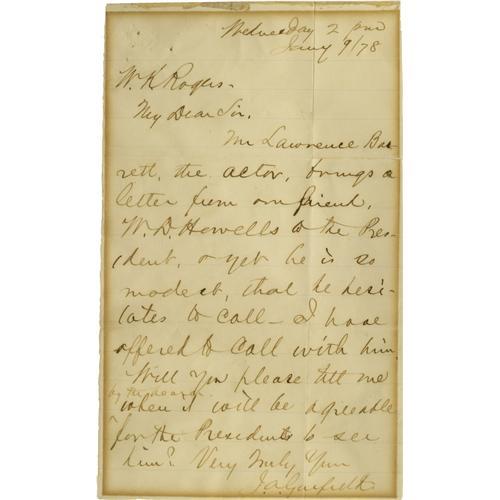 Wednesday 2 pm
Jany 9/78
W. K Rogers-
My Dear Sir,
Mr Lawrence Bar-
rett, the actor, brings a
letter from our friend,
W. D. Howells to the Pres-
ident, & yet he is so
modest, that he hesi-
tates to call - I have
offered to call with him.
Will you please tell me
by the bearer
when it will be agreeable
for the President to see
him? Very Truly Yours
J. A. Garfield